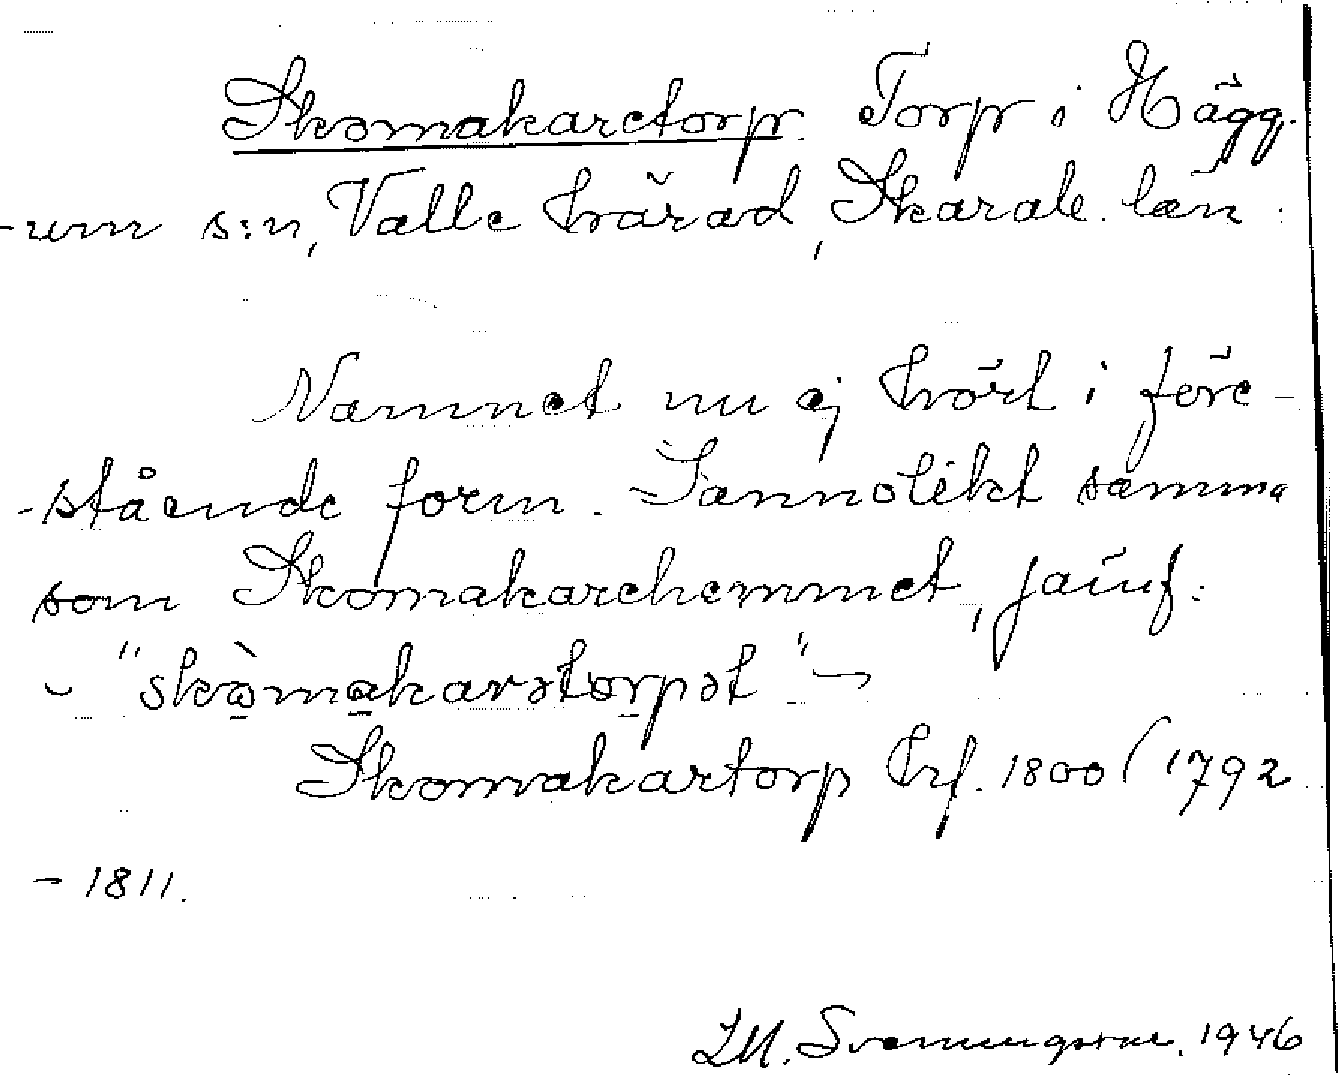 Skomakaretorp. Torp i Hägg-
-um s:n, Valle härad, Skarab. län.
Namnet nu ej hört i före-
-stående form. Sannolikt samma
som Skomakarehemmet, jämf:
- "skòmakarətorpət" -
Skomakartorp Hrf. 1800 (1792
- 1811.
Svenungsson. 1946